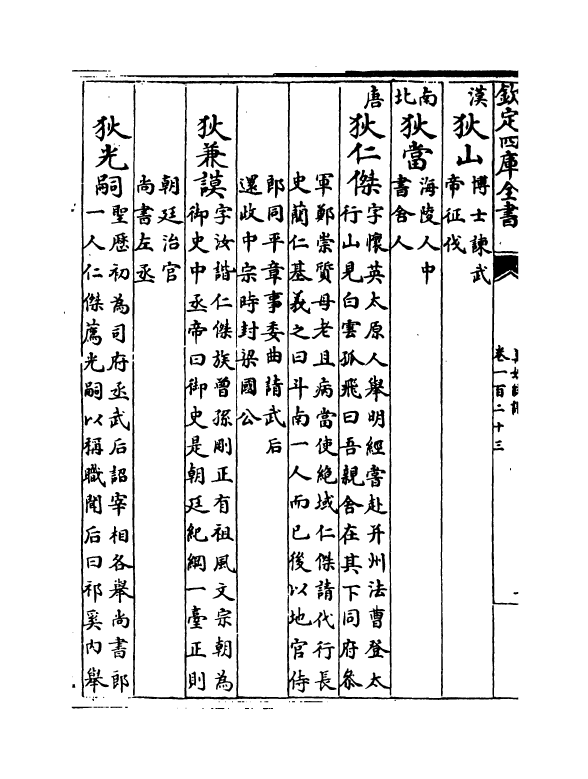 欽定四庫全書
卷一百二十三
漢
狄山
博士諫武
帝征伐
南
北
狄當
海陵人中
書舍人
唐
狄仁傑
字懷英太原人舉明經嘗赴并州法曹登太
行山見白雲孤飛曰吾親舍在其下同府叅
軍鄭崇質母老且病當使絶域仁傑請代行長
史藺仁基義之曰斗南一人而已後以地官侍
郎同平章事委曲請武后
還政中宗時封梁國公
狄兼謨
字汝諧仁傑族曾孫剛正有祖風文宗朝為
御史中丞帝曰御史是朝廷紀綱一臺正則
朝廷治官
尚書左丞
狄光嗣
聖歴初為司府丞武后詔宰相各舉尚書郎
一人仁傑薦光嗣以稱職聞后曰祁奚内舉